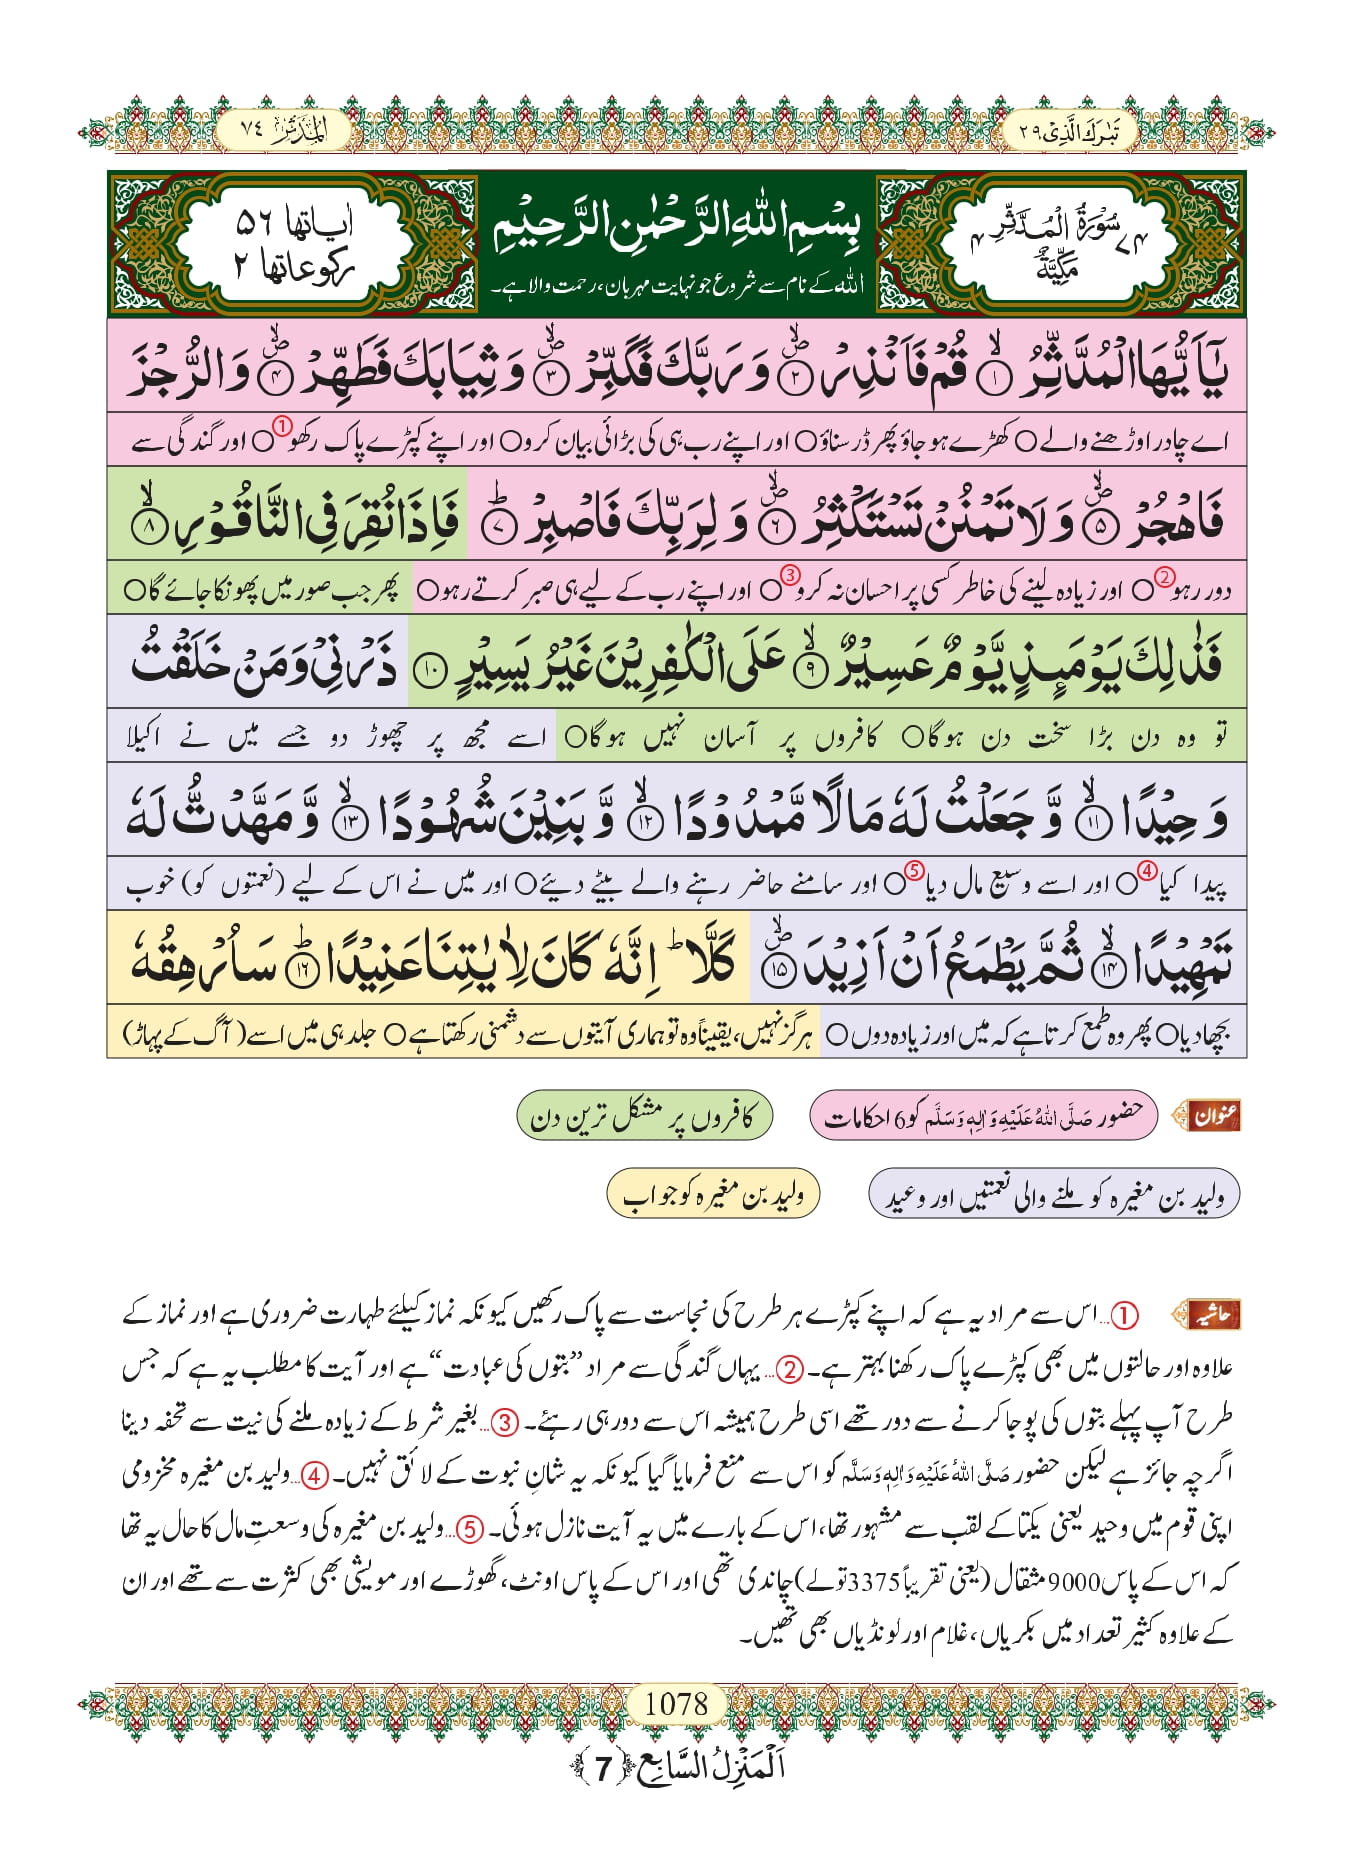 تَبٰرَكَ الَّذِیْ ۲۹
اَلْمُدَّثِّر ۷۴
۷۴ سُوْرَةُ الْمُدَّثِّرِ ۴
مَكِّیَّةٌ
بِسْمِ اللهِ الرَّحْمٰنِ الرَّحِیْمِ
اللہ کے نام سے شروع جو نہایت مہربان، رحمت والا ہے۔
اٰیاتها ۵۶
رکوعاتها ۲
یٰۤاَیُّهَا الْمُدَّثِّرُۙ ۱ قُمْ فَاَنْذِرْ۪ۙ ۲ وَ رَبَّكَ فَكَبِّرْ۪ۙ ۳ وَ ثِیَابَكَ فَطَهِّرْ۪ۙ ۴ وَ الرُّجْزَ
اے چادر اوڑھنے والے ○ کھڑے ہوجاؤ پھر ڈر سناؤ ○ اور اپنے رب ہی کی بڑائی بیان کرو ○ اور اپنے کپڑے پاک رکھو ① ○ اور گندگی سے
فَاهْجُرْ۪ۙ ۵ وَ لَا تَمْنُنْ تَسْتَكْثِرُ۪ۙ ۶ وَ لِرَبِّكَ فَاصْبِرْؕ ۷ فَاِذَا نُقِرَ فِی النَّاقُوْرِۙ ۸
دور رہو ② ○ اور زیادہ لینے کی خاطر کسی پر احسان نہ کرو ③ ○ اور اپنے رب کے لیے ہی صبر کرتے رہو ○ پھر جب صور میں پھونکا جائے گا ○
فَذٰلِكَ یَوْمَىٕذٍ یَّوْمٌ عَسِیْرٌۙ ۹ عَلَى الْكٰفِرِیْنَ غَیْرُ یَسِیْرٍ ۱۰ ذَرْنِیْ وَ مَنْ خَلَقْتُ
تو وہ دن بڑا سخت دن ہوگا ○ کافروں پر آسان نہیں ہوگا ○ اسے مجھ پر چھوڑ دو جسے میں نے اکیلا
وَحِیْدًاۙ ۱۱ وَّ جَعَلْتُ لَهٗ مَالًا مَّمْدُوْدًاۙ ۱۲ وَّ بَنِیْنَ شُهُوْدًاۙ ۱۳ وَّ مَهَّدْتُّ لَهٗ
پیدا کیا ④ ○ اور اسے وسیع مال دیا ⑤ ○ اور سامنے حاضر رہنے والے بیٹے دیئے ○ اور میں نے اس کے لیے (نعمتوں کو) خوب
تَمْهِیْدًاۙ ۱۴ ثُمَّ یَطْمَعُ اَنْ اَزِیْدَ۪ۙ ۱۵ كَلَّاؕ اِنَّهٗ كَانَ لِاٰیٰتِنَا عَنِیْدًاؕ ۱۶ سَاُرْهِقُهٗ
بچھا دیا ○ پھر وہ طمع کرتا ہے کہ میں اور زیادہ دوں ○ ہرگز نہیں، یقیناً وہ تو ہماری آیتوں سے دشمنی رکھتا ہے ○ جلد ہی میں اسے (آگ کے پہاڑ)
عنوان حضور صَلَّی اللہُ عَلَیْہِ وَاٰلِہٖ وَسَلَّم کو 6 احکامات کافروں پر مشکل ترین دن
ولید بن مغیرہ کو ملنے والی نعمتیں اور وعید ولید بن مغیرہ کو جواب
حاشیہ ①... اس سے مراد یہ ہے کہ اپنے کپڑے ہر طرح کی نجاست سے پاک رکھیں کیونکہ نماز کیلئے طہارت ضروری ہے اور نماز کے
علاوہ اور حالتوں میں بھی کپڑے پاک رکھنا بہتر ہے۔ ②... یہاں گندگی سے مراد ”بتوں کی عبادت“ ہے اور آیت کا مطلب یہ ہے کہ جس
طرح آپ پہلے بتوں کی پوجا کرنے سے دور تھے اسی طرح ہمیشہ اس سے دور ہی رہئے۔ ③... بغیر شرط کے زیادہ ملنے کی نیت سے تحفہ دینا
اگرچہ جائز ہے لیکن حضور صَلَّی اللہُ عَلَیْہِ وَاٰلِہٖ وَسَلَّم کو اس سے منع فرمایا گیا کیونکہ یہ شانِ نبوت کے لائق نہیں۔ ④... ولید بن مغیرہ مخزومی
اپنی قوم میں وحید یعنی یکتا کے لقب سے مشہور تھا، اس کے بارے میں یہ آیت نازل ہوئی۔ ⑤... ولید بن مغیرہ کی وسعتِ مال کا حال یہ تھا
کہ اس کے پاس 9000 مثقال (یعنی تقریباً 3375 تولے) چاندی تھی اور اس کے پاس اونٹ، گھوڑے اور مویشی بھی کثرت سے تھے اور ان
کے علاوہ کثیر تعداد میں بکریاں، غلام اور لونڈیاں بھی تھیں۔
1078
اَلْمَنْزِلُ السَّابِع ﴿7﴾